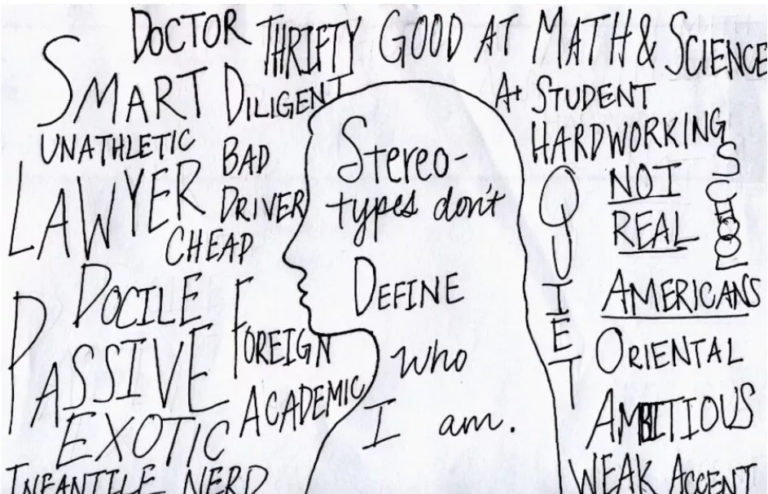 DOCTOR THRIFTY GOOD AT MATH & SCIENCE
SMART DILIGENT
A+ STUDENT
UNATHLETIC BAD
DRIVER
HARDWORKING
LAWYER
CHEAP
Stereo-
types don't
DEFINE
who
I am.
QUIET
NOT
REAL
AMERICANS
DOCILE
FOREIGN
PASSIVE
ACADEMIC
EXOTIC
INFANTILE NERD
ORIENTAL
AMBITIOUS
WEAK ACCENT